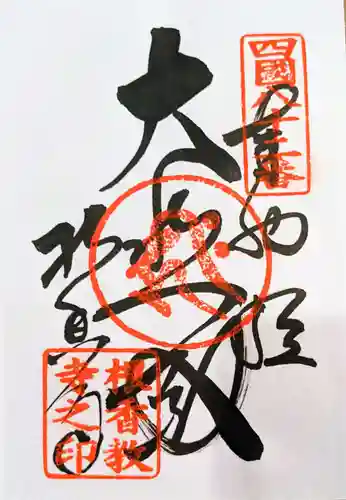 四國八十二番
奉納經
大
根香寺
根香教
寺之印